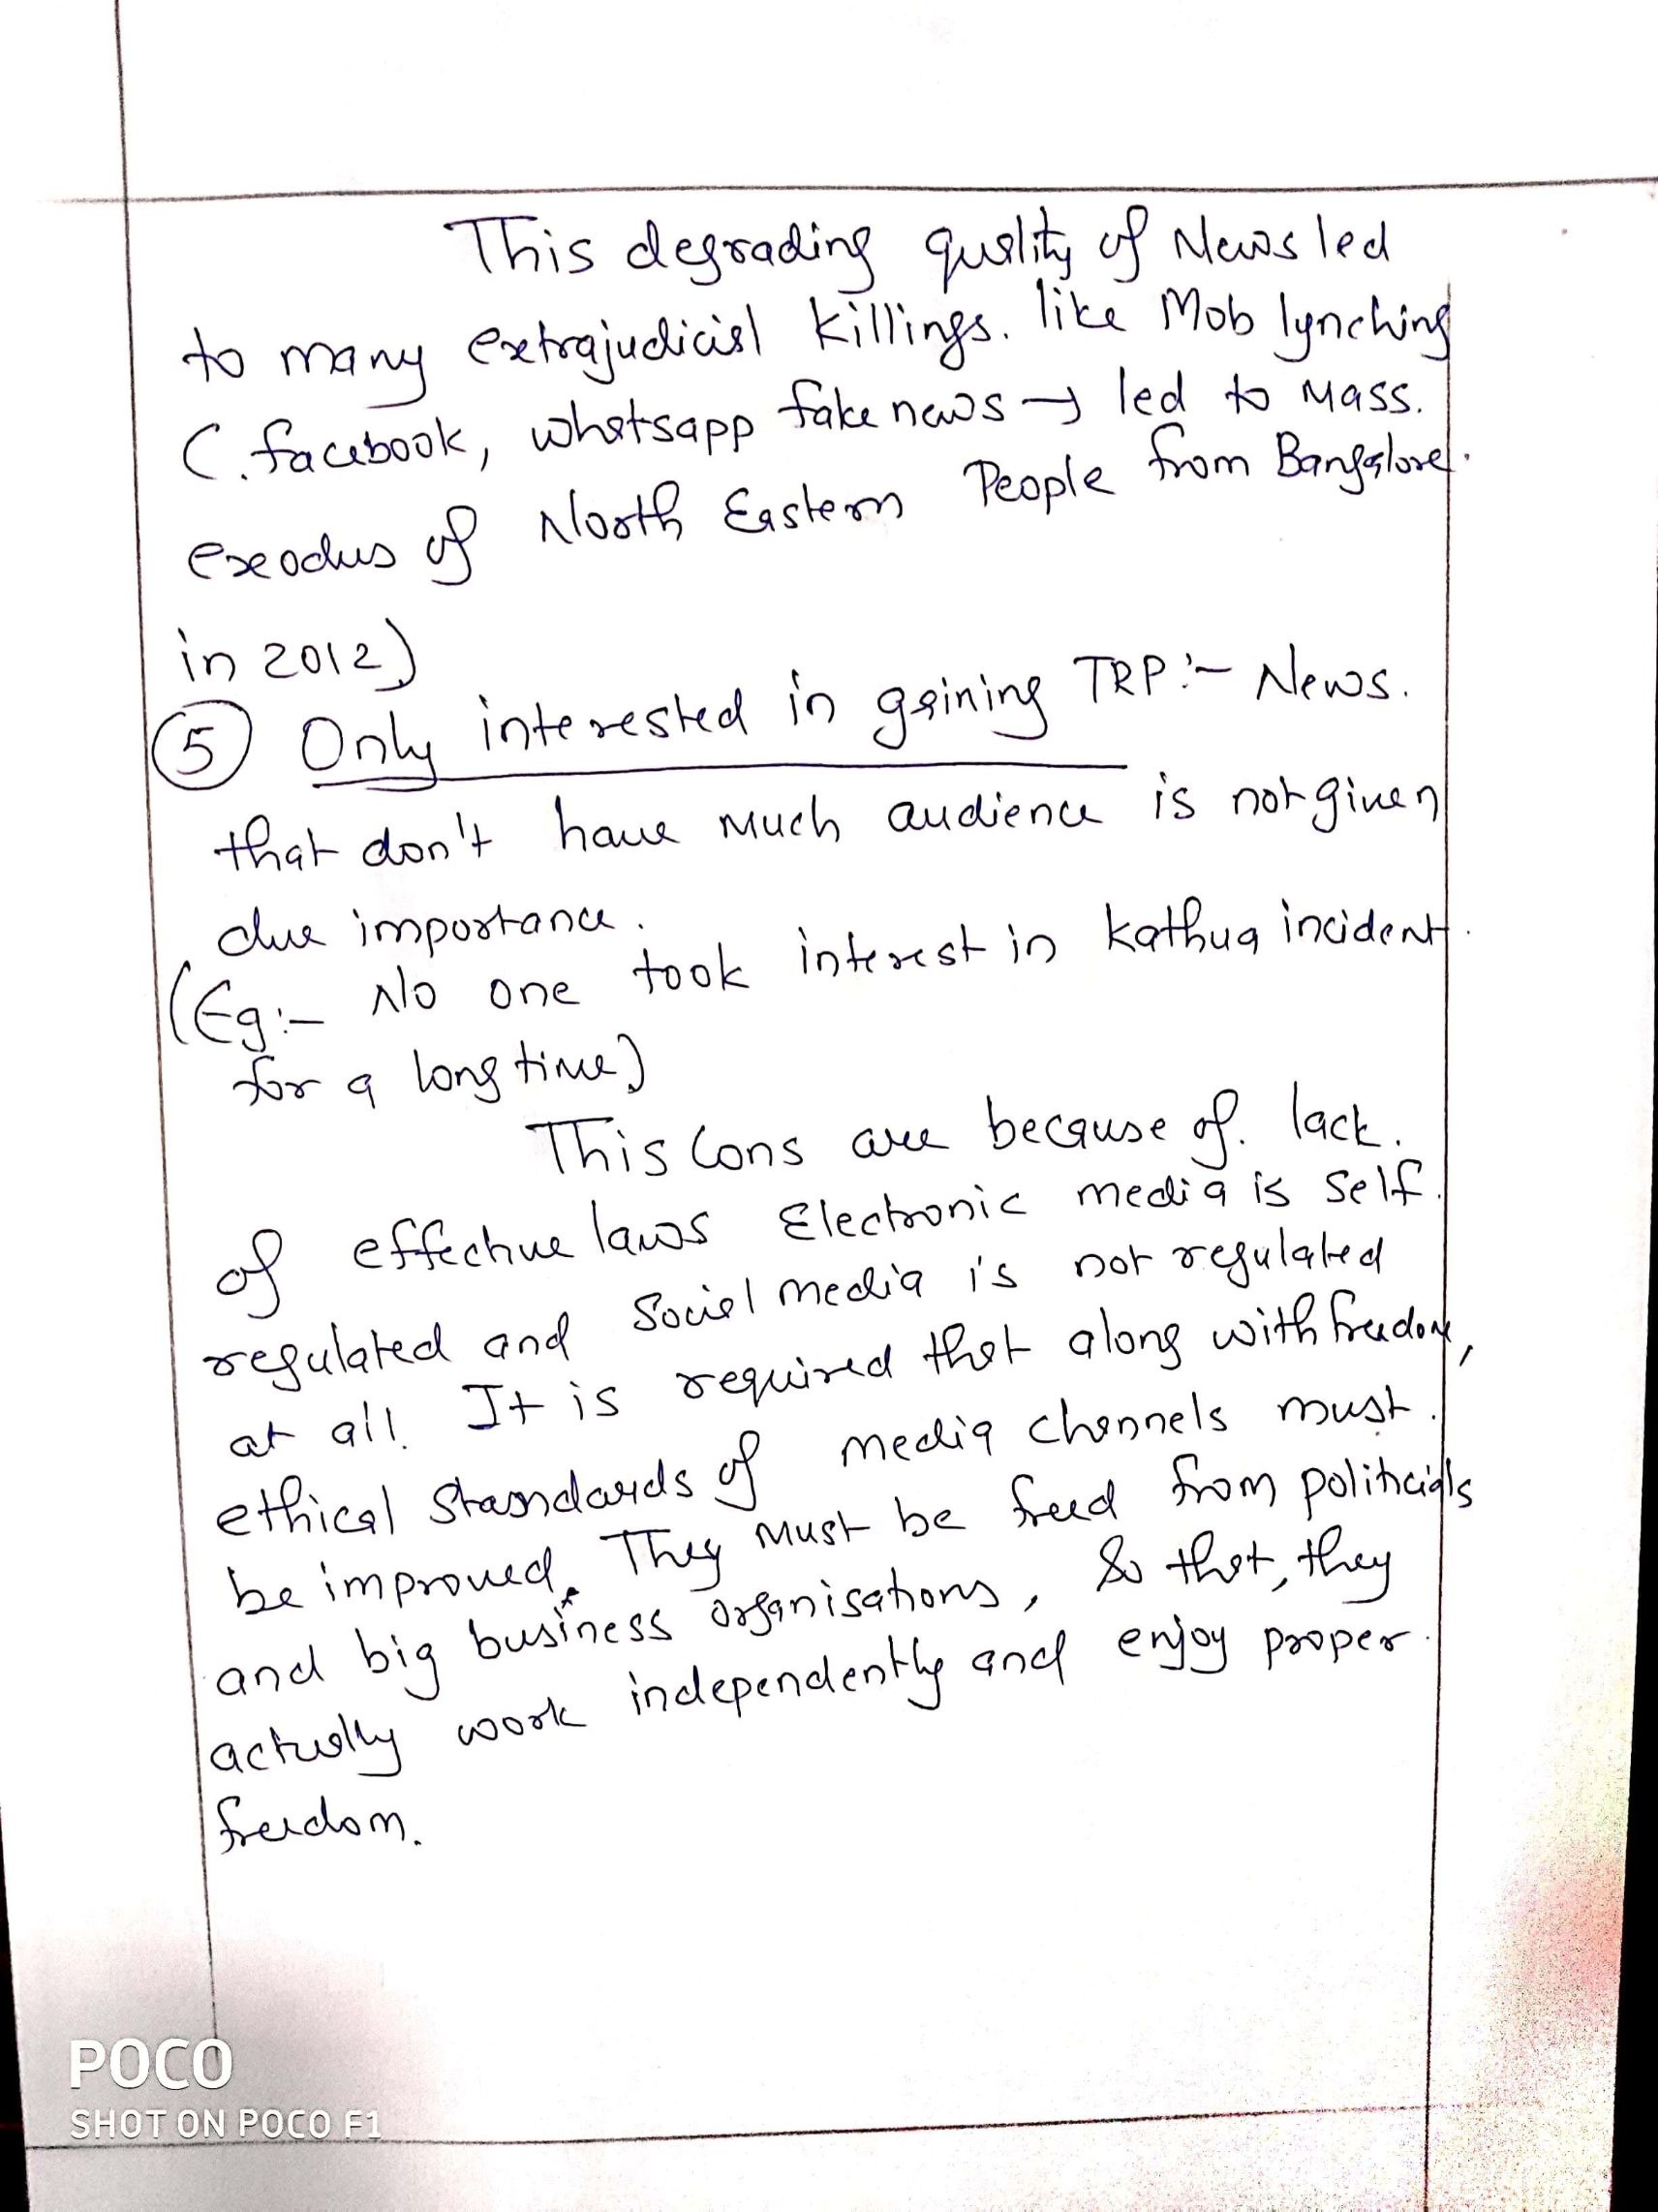 This degrading quality of News led
to many extrajudicial killings. like Mob lynching
(. facebook, whatsapp fake news → led to Mass.
exodus of North Eastern People from Bangalore.
in 2012)
⑤ Only interested in gaining TRP :- News.
that don't have much audience is not given
due importance.
(Eg:- No one took interest in kathua incident.
for a long time)
This Cons are because of. lack.
of effective laws Electronic media is self.
regulated and Social media is not regulated
at all. It is required that along with freedom,
ethical Standards of media channels must.
be improved. They must be freed from politicials
and big business organisations, So that, they
actually work independently and enjoy proper.
freedom.
POCO
SHOT ON POCO F1